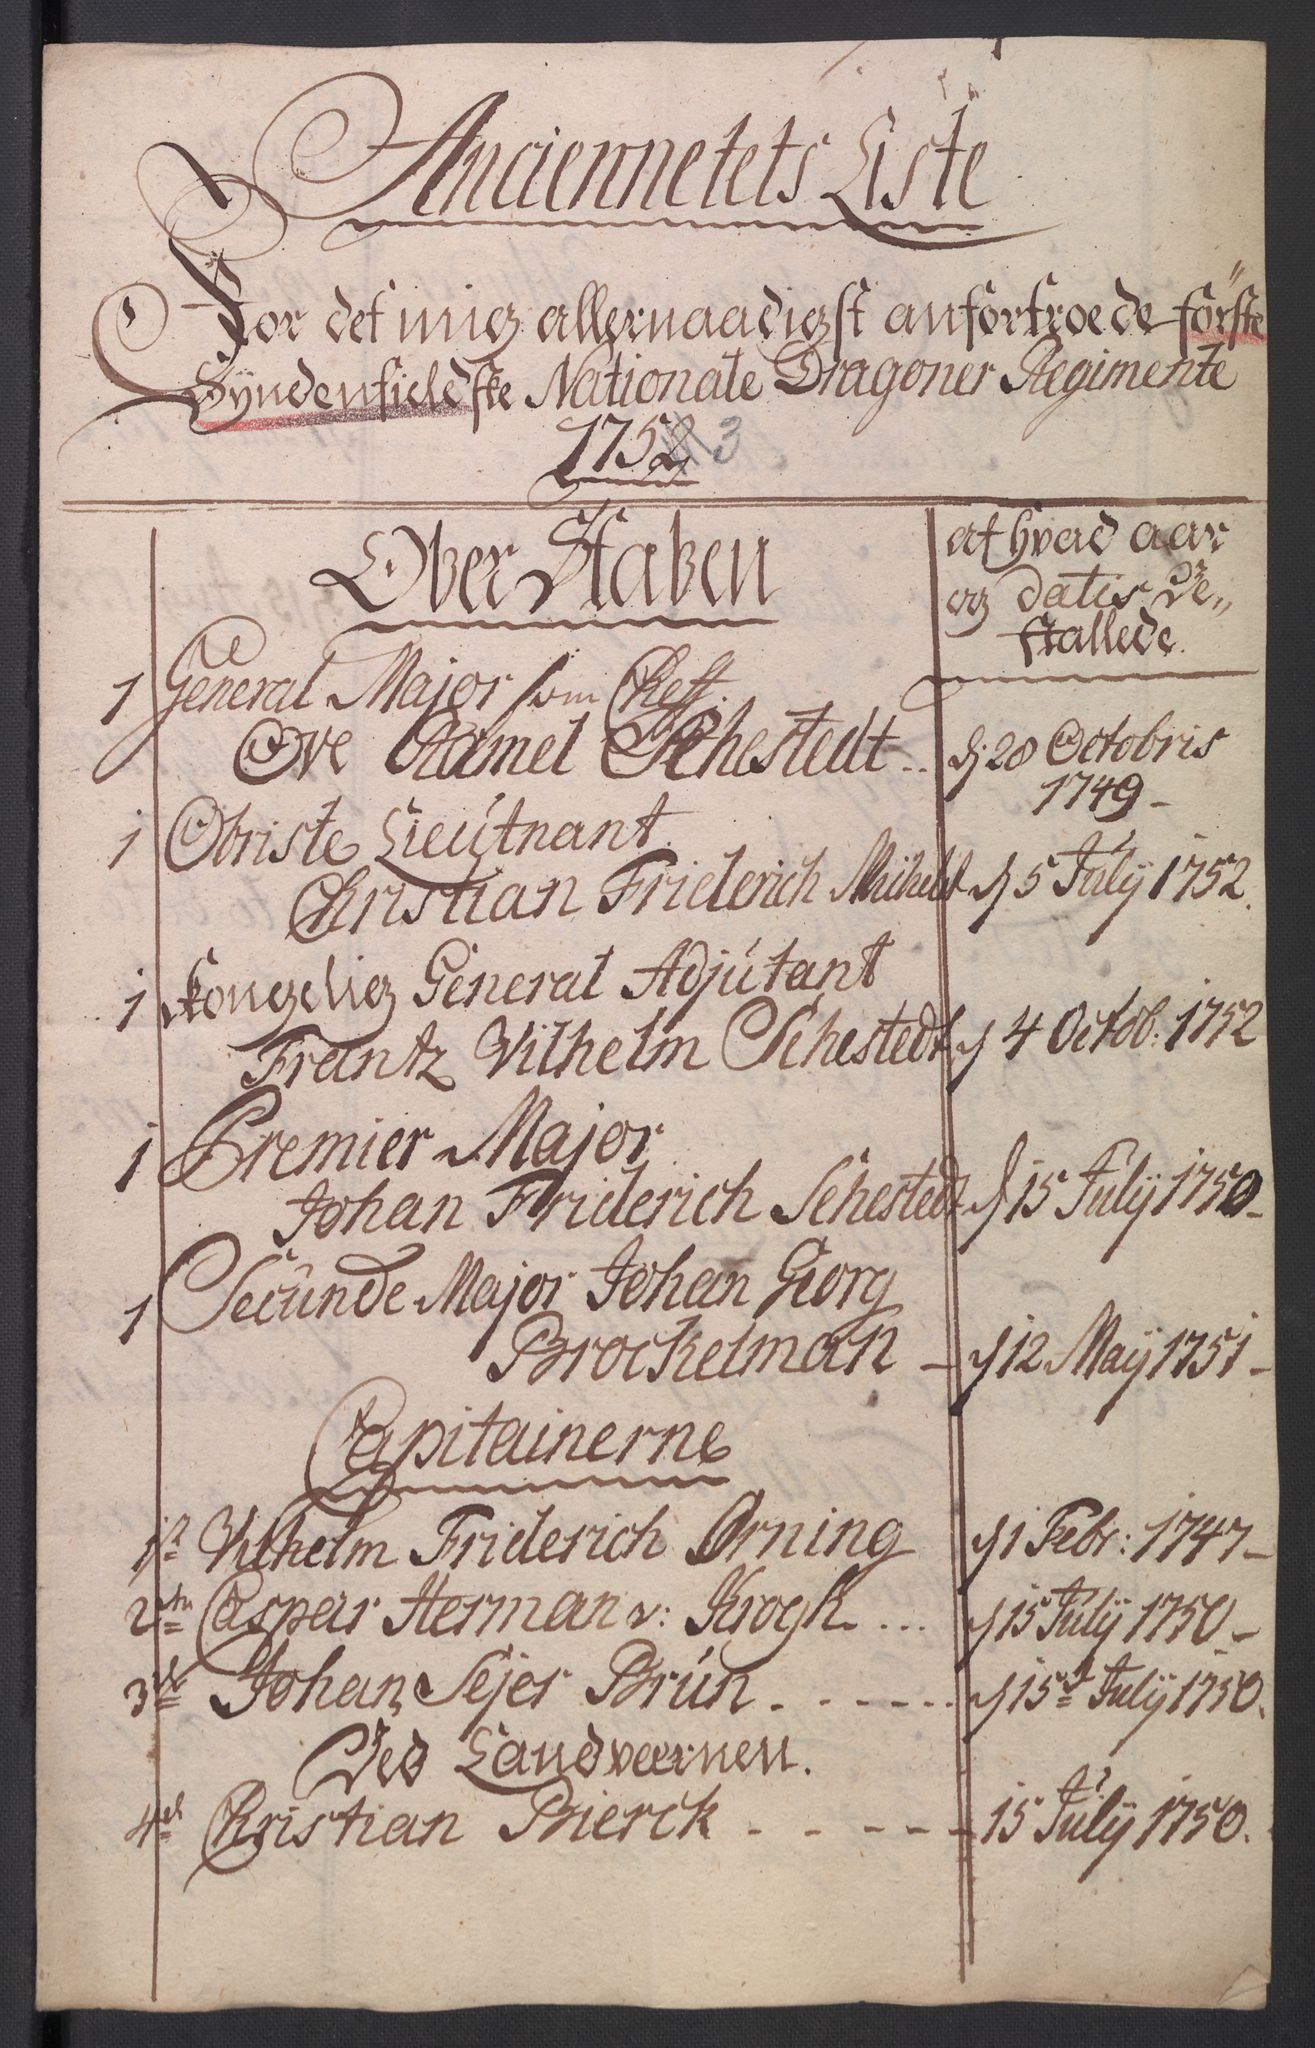 Anciennetets Liste
For det mig allernaadigst anfortroede förste
Syndenfieldske Nationale Dragoner Regimente
1752 3
Ober Staben
af hvad aar
og datis Be„
stallede.
1 General Major som Cheff.
Ove Ramel Sehestedt .. d. 28 Octobris
1749 -
1 Obriste Lieutnant
Christian Friderich d 5 Julÿ 1752.
1 Kongelig General Adjutant
Frantz Vilhelm Sehestedt d 4 Octob: 1752
1 Premier Major
Johan Friderich Sehestedt d 15 Julÿ 1750 -
1 Secunde Major Johan Georg
Brockelman - d 12 Maÿ 1751 -
Capitainerne
1st Vilhelm Friderich Örning d 1 Febr: 1747 -
2den Caspar Herman v: Krogh ... d 15 Julÿ 1750 -
3de Johan Sejer Brun . - - - - . d 15d Julÿ 1750.
Ved Landværnen.
4de Christian Bierck - - - - - - 15 Julÿ 1750.